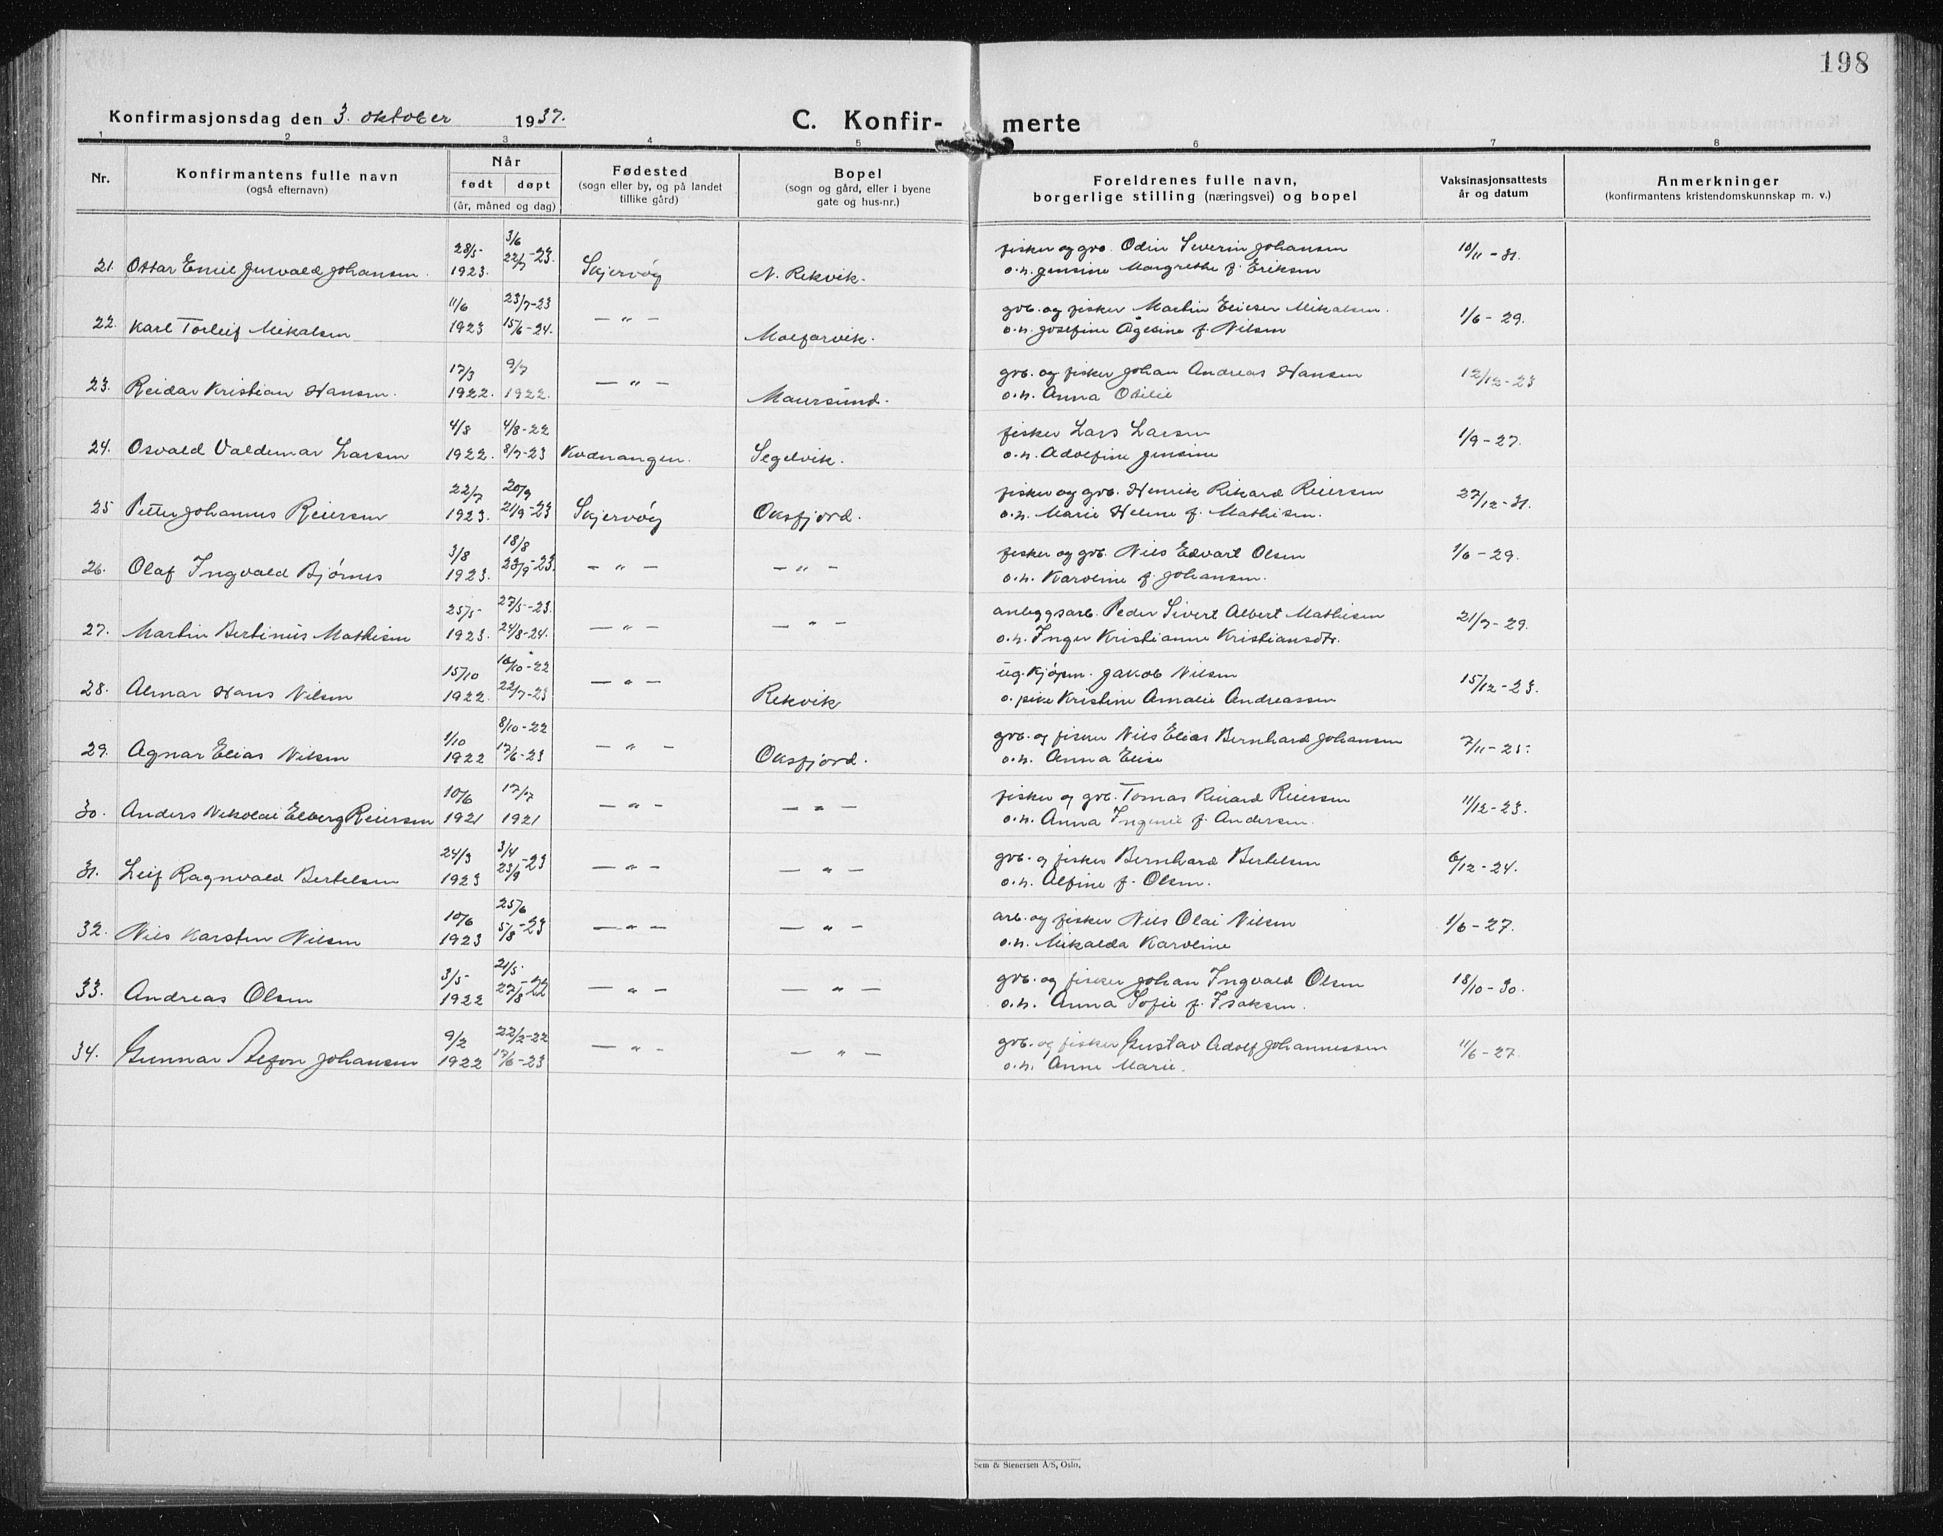 198
Konfirmasjonsdag den 3. oktober 1937.
C. Konfir- merte
1 2 3 4 5 6 7 8
Nr.
Konfirmantens fulle navn
(også efternavn)
Når
født døpt
(år, måned og dag)
Fødested
(sogn eller by, og på landet
tillike gård)
Bopel
(sogn og gård, eller i byene
gate og hus-nr.)
Foreldrenes fulle navn,
borgerlige stilling (næringsvei) og bopel
Vaksinasjonsattests
år og datum
Anmerkninger
(konfirmantens kristendomskunnskap m. v.)
28/5- 3/6 22/7-23. fisker og gvb. Odin Severin Johansen 10/11-31.
21. Ottar Emil Jenvald Johansen. 1923. Skjervøy N. Rekvik. o.h. Jensine Margrethe f. Eriksen
11/6 23/7-23 gvb. og fisker Martin Elieser Mikalsen. 1/6-29.
22. Karl Torleif Mikalsen 1923 15/6-24. — " — Molfarvik. o.h. Josefine Agesine f. Nilsen
17/3 9/7 gvb. og fisker Johan Andreas Hansen 12/12-23
23. Reidar Kristian Hansen. 1922. 1922. — " — Maursund. o.h. Anna Odilie
4/8 4/8-22 fisker Lars Larsen 1/9-27.
24. Osvald Valdemar Larsen 1922. 8/7-23 Kvænangen. Segelvik. o.h. Adolfine Jensine
22/7 20/9 fisker og gvb. Henrik Rikard Reiersen 27/12-31.
25 Petter Johannes Reiersen 1923. 21/9-23 Skjervøy Oksfjord. o.h. Marie Helene f. Mathisen.
3/8 18/8 fisker og gvb. Nils Edvart Olsen 1/6-29.
26. Olaf Ingvald Bjørnes 1923. 23/9-23. — " — — " — o.h. Karoline f. Johansen.
25/5- 27/5-23. anleggsarb. Peder Sivert Albert Mathisen 21/7-29.
27. Martin Bertinus Mathisen 1923. 24/8-24. — " — — " — o.h. Inger Kristianne Kristiansdtr.
15/10 16/10-22 ug. kjøpm. Jakob Nilsen 15/12-23.
28. Almar Hans Nilsen 1922. 22/7-23 — " — Rekvik o. pike Kristine Amalie Andreassen
1/10 8/10-22 gvb. og fisker Nils Elias Bernhard Johansen 7/11-25.
29. Agnar Elias Nilsen 1922 17/6-23 — " — Oksfjord. o.h. Anna Elise
10/6 17/7 fisker og gvb. Tomas Rikard Reiersen 11/12-23.
30. Anders Nikolai Elberg Reiersen 1921 1921 — " — — " — o.h. Anna Ingerie f. Andersen.
24/3 3/4 gvb. og fisker Bernhard Bertelsen 6/12-24.
31. Leif Ragnvald Bertelsen 1923 23/9-23 — " — — " — o.h. Alfine f. Olsen.
10/6 25/6 arb. og fisker Nils Olai Nilsen 1/6-27.
32. Nils Karsten Nilsen 1923 5/8-23 — " — — " — o.h. Mikalda Karoline
3/5- 21/5- gvb. og fisker Johan Ingvald Olsen 18/10-30.
33. Andreas Olsen 1922 27/8-22 — " — — " — o.h. Anna Sofie f. Isaksen.
9/2 22/2-22 gvb. og fisker Gustav Adolf Johannessen 11/6-27.
34. Gunnar Alfon Johansen 1922 17/6-23 — " — — " — o.h. Anne Marie.
Sem & Stenersen A/S, Oslo.